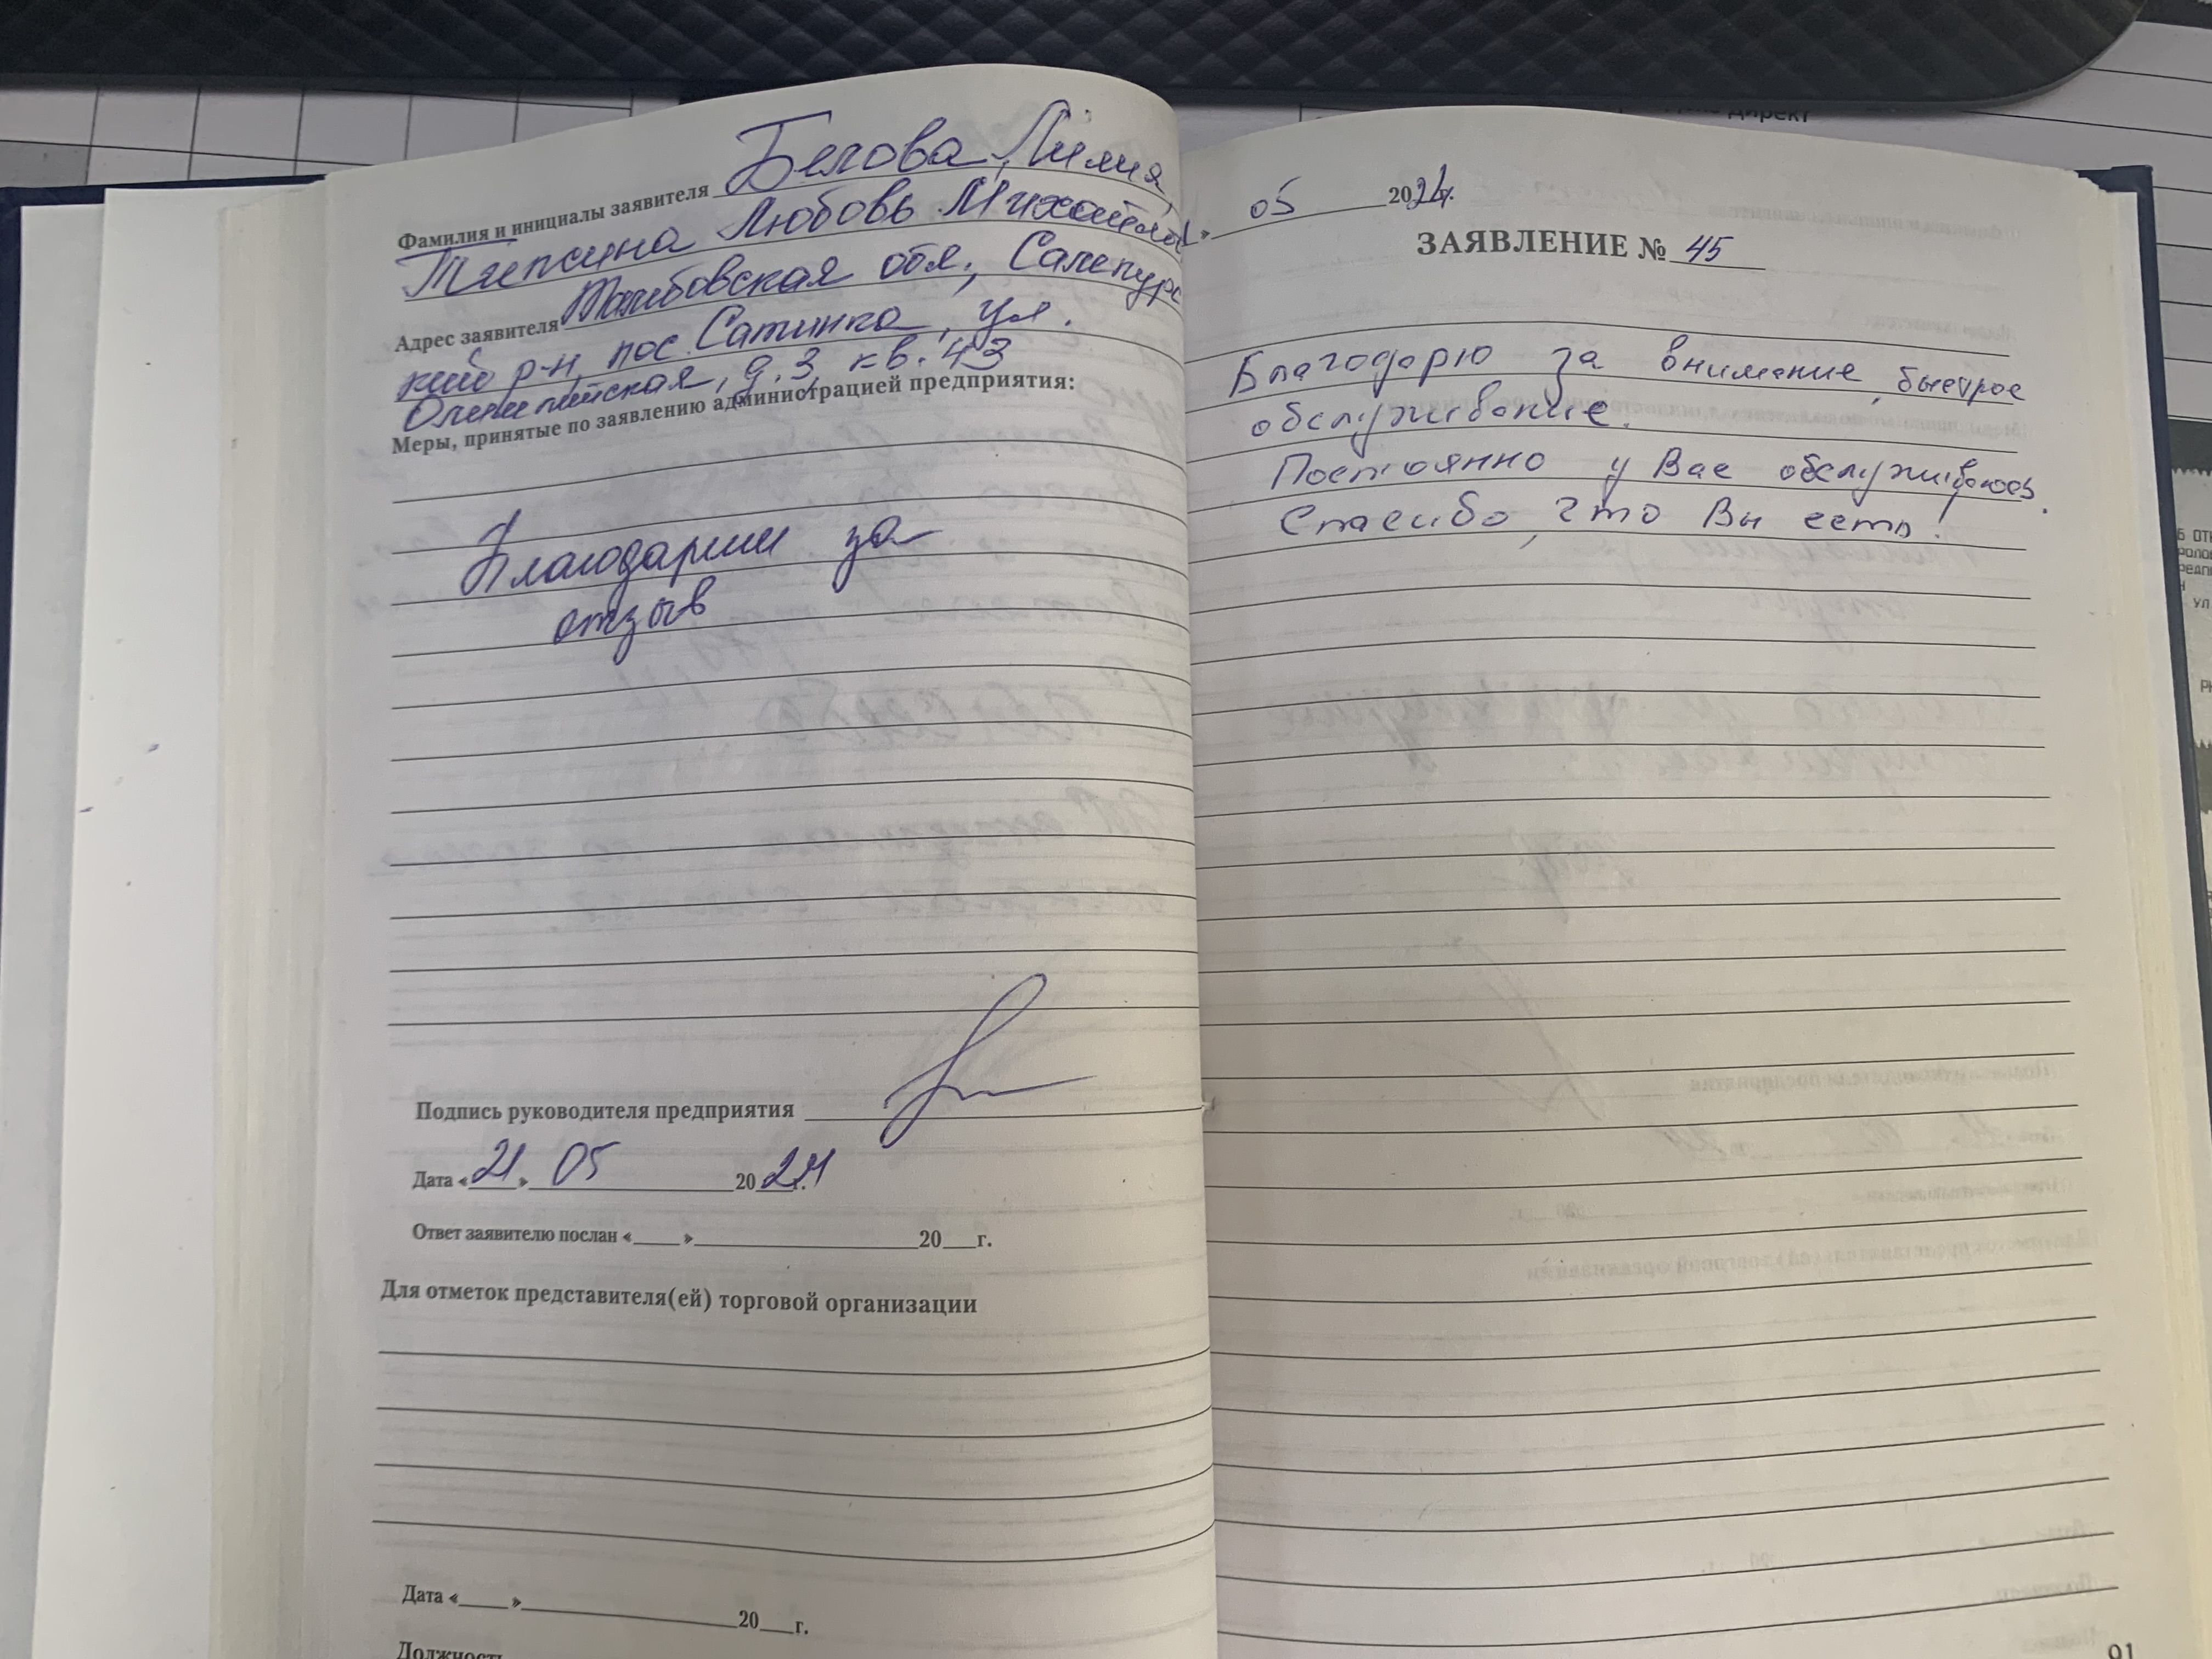 Фамилия и инициалы заявителя Белова Лилия,
Типсина Любовь
Адрес заявителя Тамбовская обл.,
р-н, пос. Сатинка, ул.
Олимпийская, д. 3, кв. 43
Меры, принятые по заявлению администрацией предприятия:
Благодарим за
отзыв
Подпись руководителя предприятия
Дата «21» 05 2024 г.
Ответ заявителю послан «____» 20___г.
Для отметок представителя(ей) торговой организации
Дата «____» 20___г.
Должность
05 2024г.
ЗАЯВЛЕНИЕ № 45
Благодарю за внимание, быстрое
обслуживание.
Постоянно у Вас обслуживаюсь.
Спасибо, что Вы есть!
91